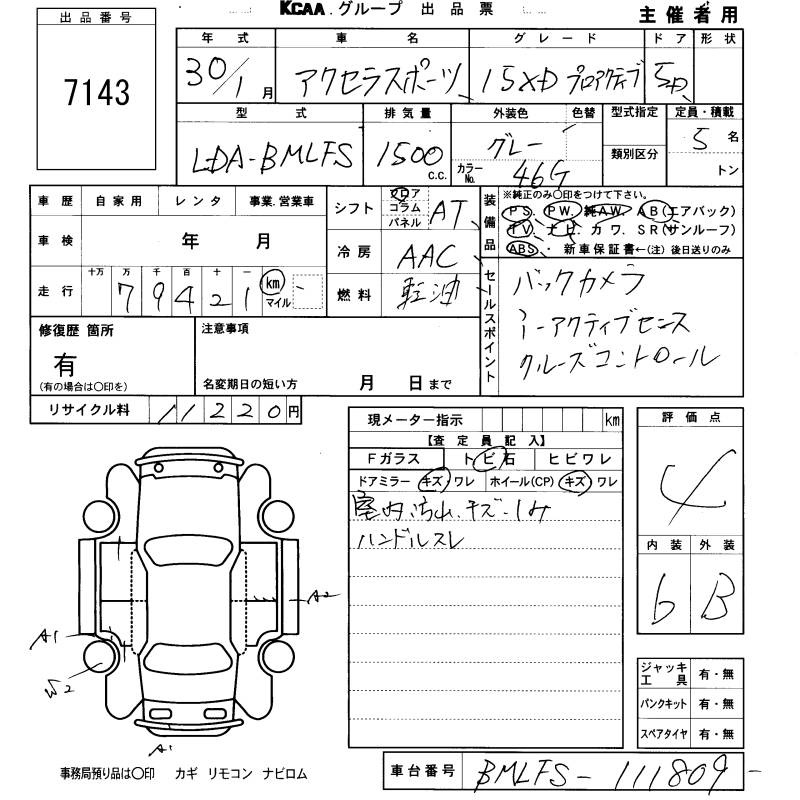 KCAA.グループ 出品票
主催者用
出品番号
7143
年式 車名 グレード ドア 形状
30/1月 アクセラスポーツ 15XD プロアクティブ 5D
型式 排気量 外装色 色替 型式指定 定員・積載
LDA-BMLFS 1500 c.c. グレー カラーNo. 46G 類別区分 5名 トン
車歴 自家用 レンタ 事業.営業車
車検 年 月
走行 十万 万 千 百 十 一
79421 km マイル
シフト フロア コラム パネル AT
冷房 AAC
燃料 軽油
装備品 ※純正のみ〇印をつけて下さい。
PS. PW. 純AW. AB(エアバック)
TV. ナビ. カワ. SR(サンルーフ)
ABS. 新車保証書←(注) 後日送りのみ
セールスポイント
バックカメラ
i-アクティブセンス
クルーズコントロール
修復歴 箇所
有
(有の場合は〇印を)
注意事項
名変期日の短い方 月 日まで
リサイクル料 11220円
現メーター指示 km
【査定員記入】
Fガラス トビ石 ヒビワレ
ドアミラー キズ ワレ ホイール(CP) キズ ワレ
室内汚れ.キズ.シミ
ハンドルスレ
評価点
4
内装 外装
b B
ジャッキ工具 有・無
パンクキット 有・無
スペアタイヤ 有・無
A2
A1
W2
A1
事務局預り品は〇印 カギ リモコン ナビロム
車台番号 BMLFS-111809-